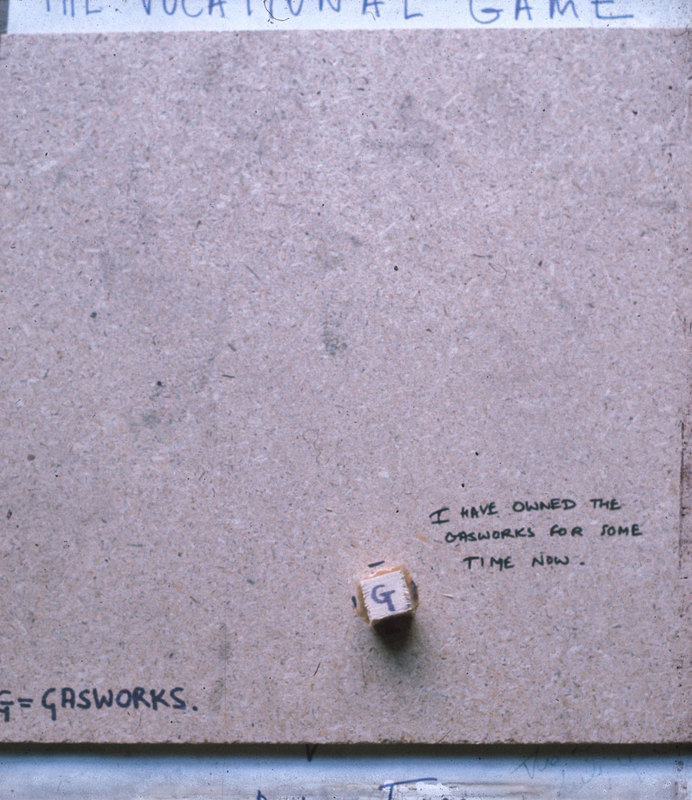 THE VOCATIONAL GAME
I HAVE OWNED THE
GASWORKS FOR SOME
TIME NOW.
G
G = GASWORKS.